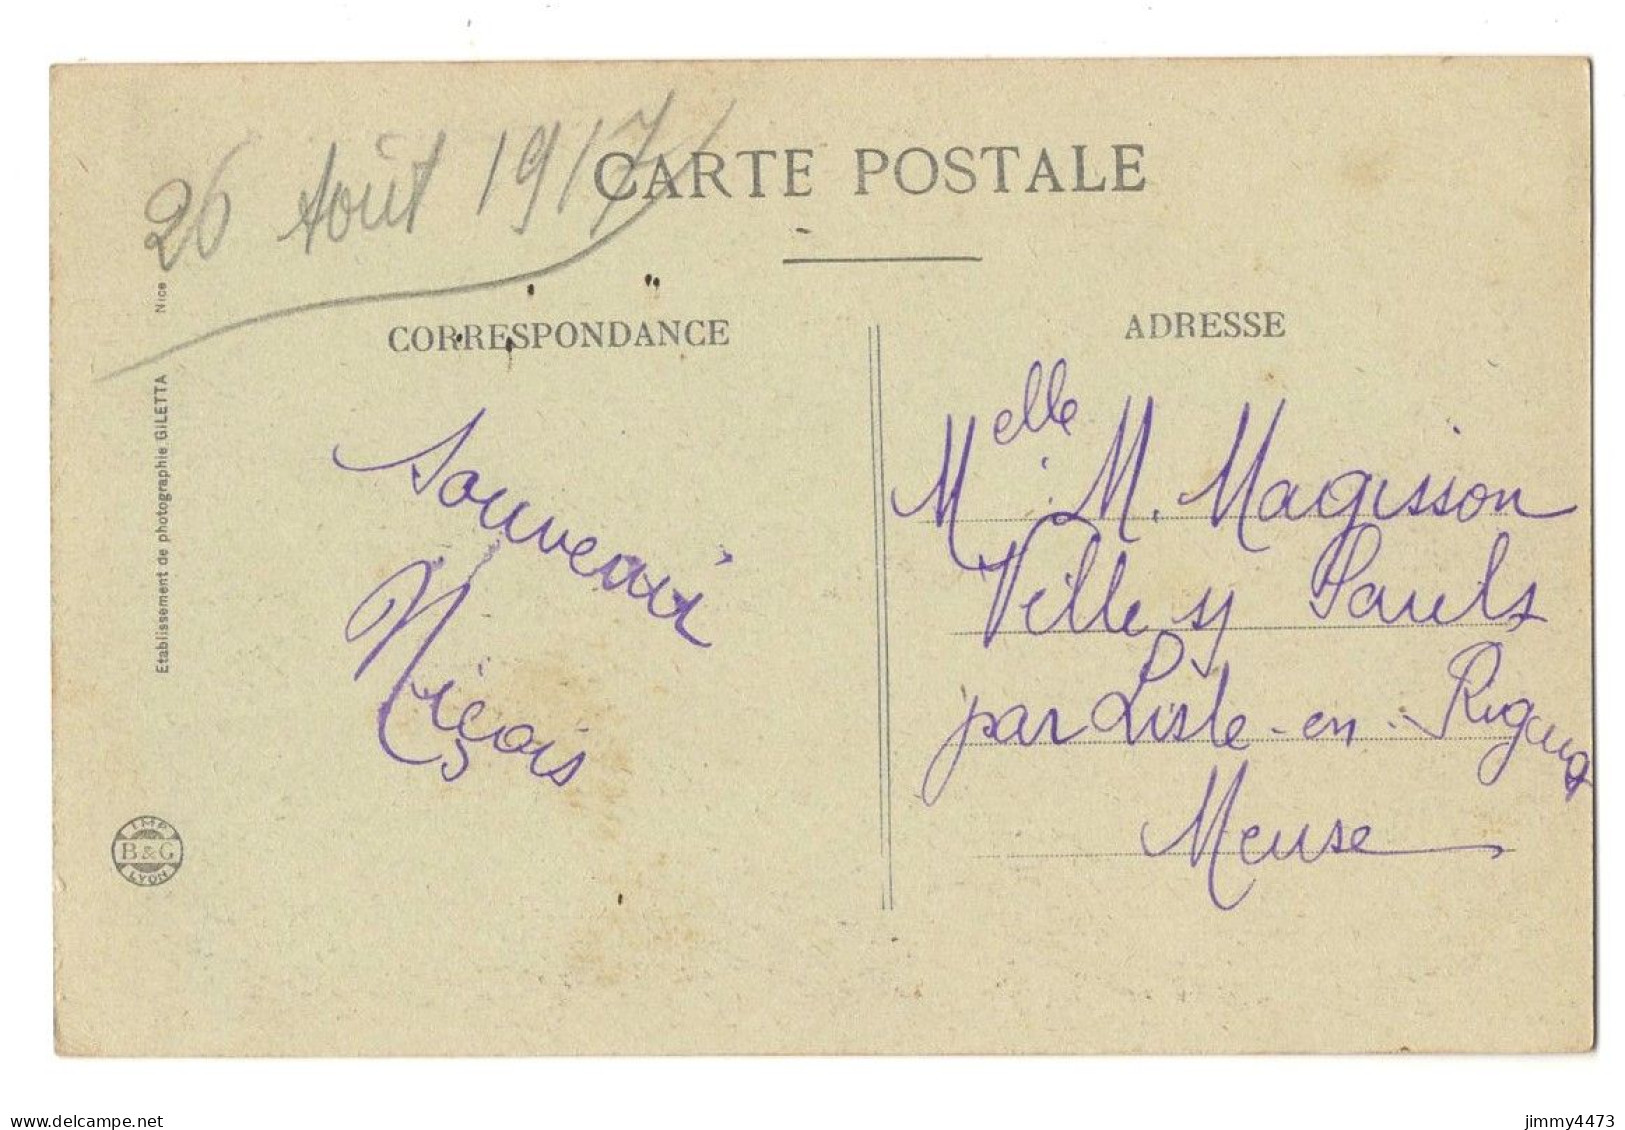 26 Août 1917
CARTE POSTALE
CORRESPONDANCE
ADRESSE
Souvenir
Niçois
Melle M. Magisson
Ville sy Sauls
par Lisle-en-Rigault
Meuse
Etablissement de photographie GILETTA Nice
IMP.
B&G
LYON
delcampe.net
jimmy4473